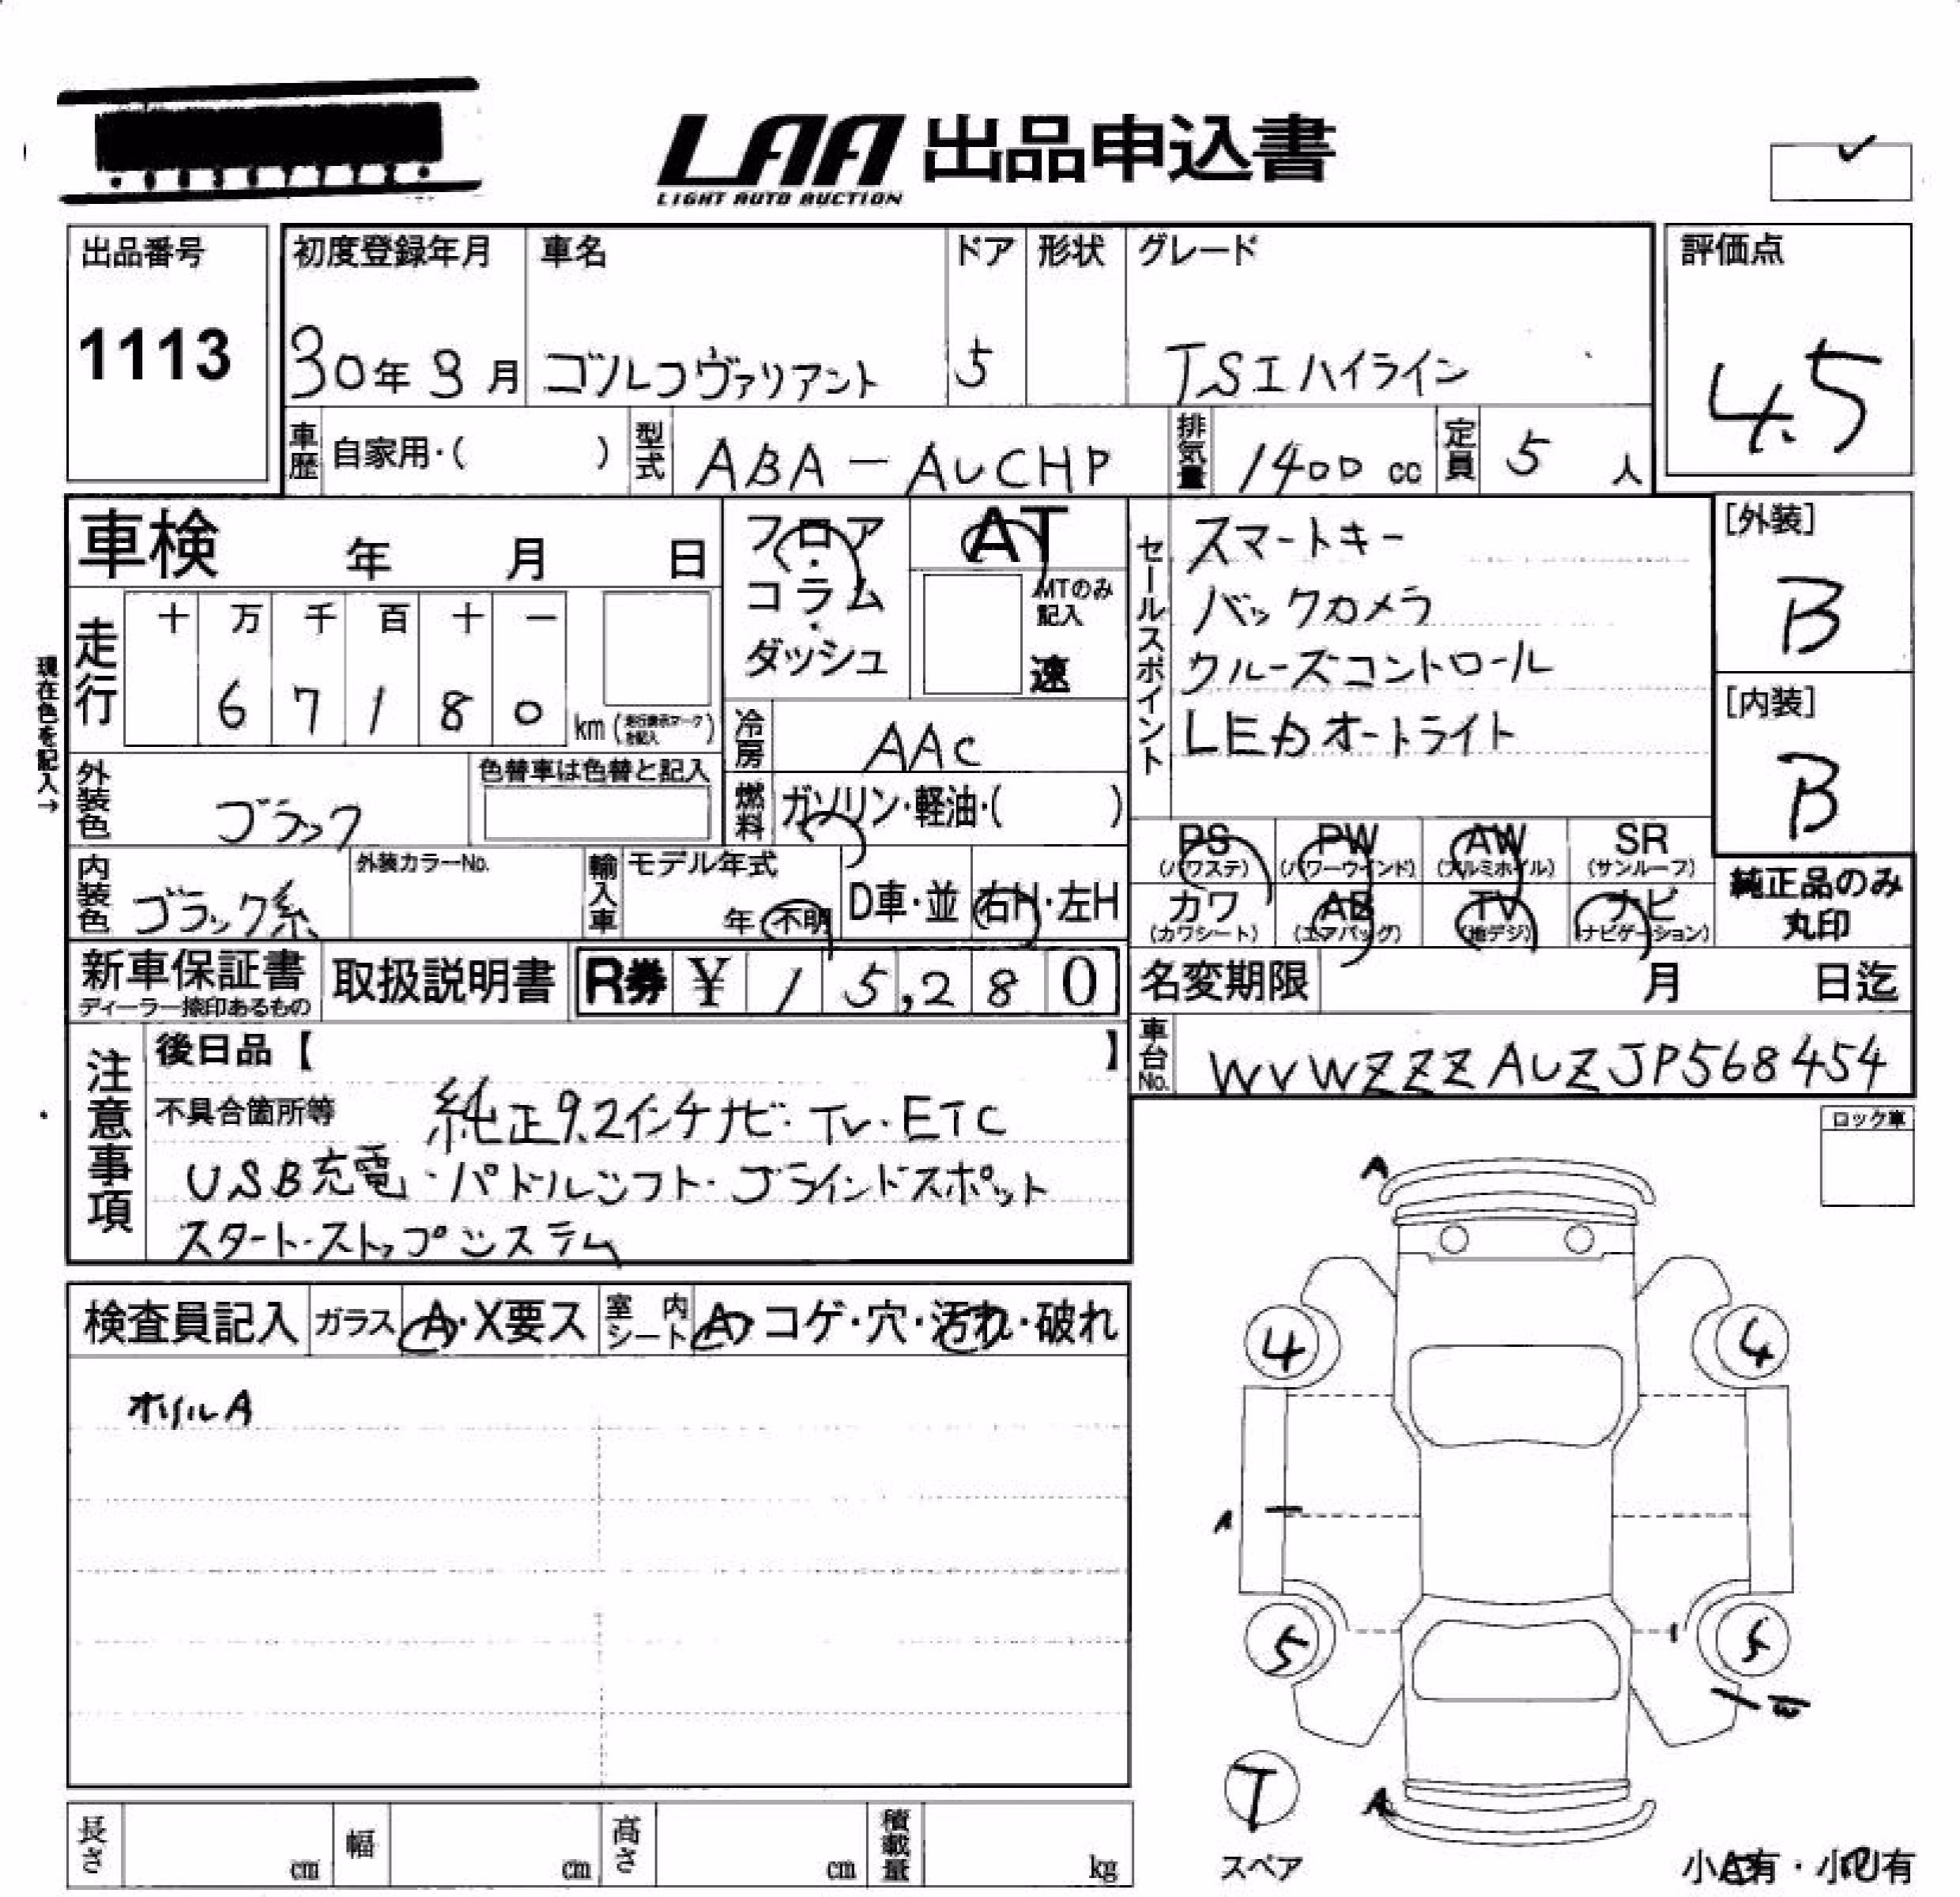 LAA 出品申込書
LIGHT AUTO AUCTION
出品番号
1113
初度登録年月
30年 9月
車名
ゴルフヴァリアント
ドア
5
形状
グレード
TSIハイライン
評価点
4.5
車歴 自家用・( )
型式 ABA-AUCHP
排気量 1400 cc
定員 5 人
車検 年 月 日
フロア・コラム・ダッシュ
AT
MTのみ記入
速
セールスポイント
スマートキー
バックカメラ
クルーズコントロール
LEDオートライト
[外装]
B
[内装]
B
現在色を記入→
走行
十 万 千 百 十 一
6 7 1 8 0 km (走行表示マークを記入)
冷房 AAC
燃料 ガソリン・軽油・( )
外装色 ブラック
色替車は色替と記入
内装色 ブラック系
外装カラーNo.
輸入車 モデル年式
年 不明
D車・並 右H・左H
PS (パワステ)
PW (パワーウインド)
AW (アルミホイル)
SR (サンルーフ)
カワ (カワシート)
AB (エアバッグ)
TV (地デジ)
ナビ (ナビゲーション)
純正品のみ丸印
新車保証書
ディーラー捺印あるもの
取扱説明書
R券 ¥ 1 5,2 8 0
名変期限 月 日迄
車台No. WVWZZZAUZJP568454
注意事項
後日品【 】
不具合箇所等 純正9.2インチナビ・TV・ETC
USB充電・パドルシフト・ブラインドスポット
スタート・ストップシステム
ロック車
検査員記入
ガラス A・X要ス
室内シート A・コゲ・穴・汚れ・破れ
ホイルA
A
4
4
A
5
5
W
T
スペア
A
小A有・小U有
長さ cm
幅 cm
高さ cm
積載量 kg